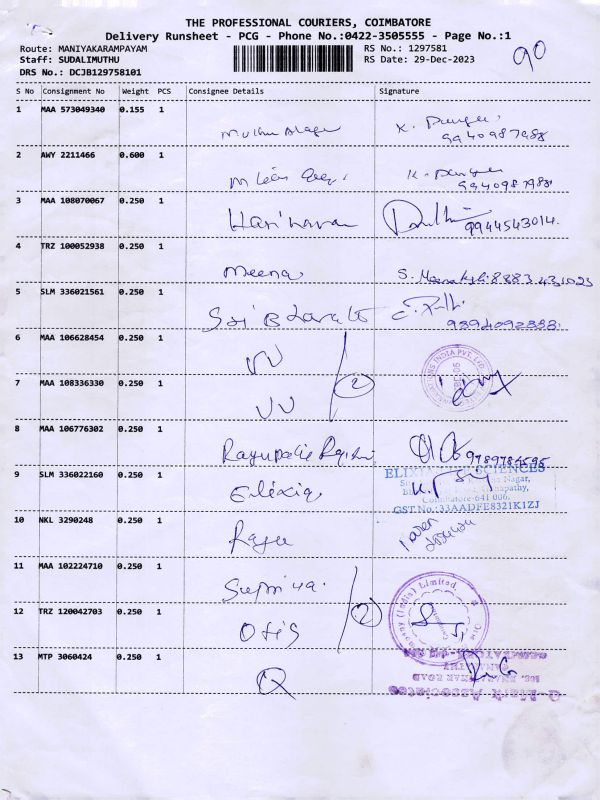 THE PROFESSIONAL COURIERS, COIMBATORE
Delivery Runsheet - PCG - Phone No.:0422-3505555 - Page No.:1
Route: MANIYAKARAMPAYAM RS No.: 1297581
90
Staff: SUDALIMUTHU RS Date: 29-Dec-2023
DRS No.: DCJB129758101
S No Consignment No Weight PCS Consignee Details Signature
1 MAA 573049340 0.155 1
9940987988
2 AWY 2211466 0.600 1
9940987988
3 MAA 108070067 0.250 1 Hariharan 9944543014.
4 TRZ 100052938 0.250 1 Meena S. Meenakshi 8883431023
5 SLM 336021561 0.250 1 Sri Bharath
9894092888.
6 MAA 106628454 0.250 1 VV
2
7 MAA 108336330 0.250 1 VV
8 MAA 106776302 0.250 1 9789784595
9 SLM 336022160 0.250 1 Elixir
ELIXIR LIFE SCIENCES
Nagar,
Ganapathy,
Coimbatore-641 006.
GST.No.:33AADFE8321K1ZJ
10 NKL 3290248 0.250 1 Raju
11 MAA 102224710 0.250 1 Supriya.
2
12 TRZ 120042703 0.250 1 Otis
13 MTP 3060424 0.250 1 Q